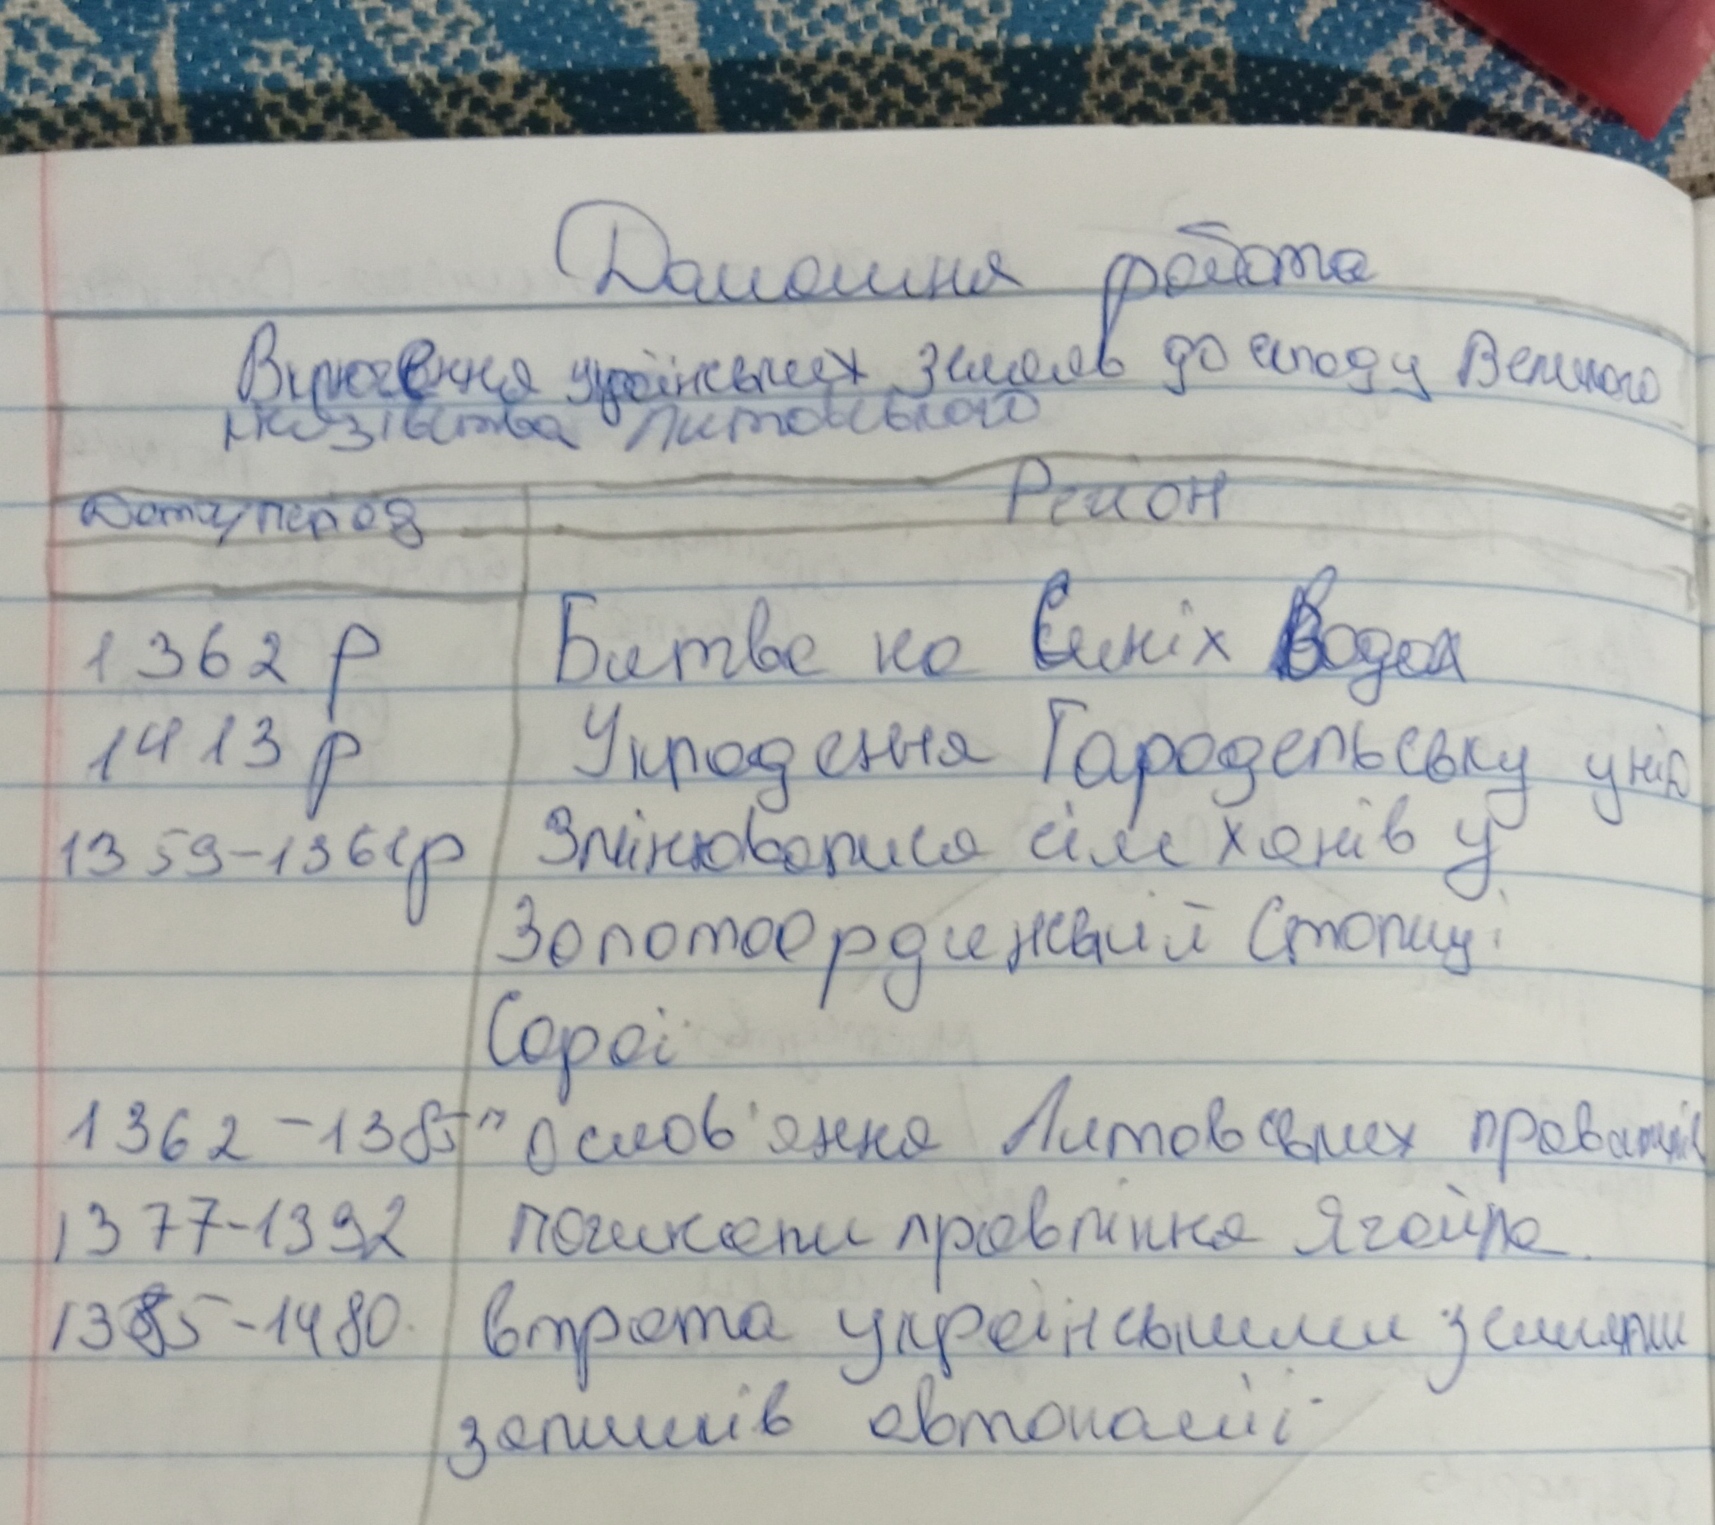 Домашня робота
Включення українських земель до складу Великого
князівства Литовського
Дата/період Регион
1362 р Битва на Синіх Водах
1413 р Укладення Городельську унію
1359-1361р Змінювалися сім ханів у
Золотоординській Столиці
Сараї
1362-1385 "ослов'яння Литовських правителів
1377-1392 починали правління Ягайла
1385-1480. втрата українськими землями
залишків автономії